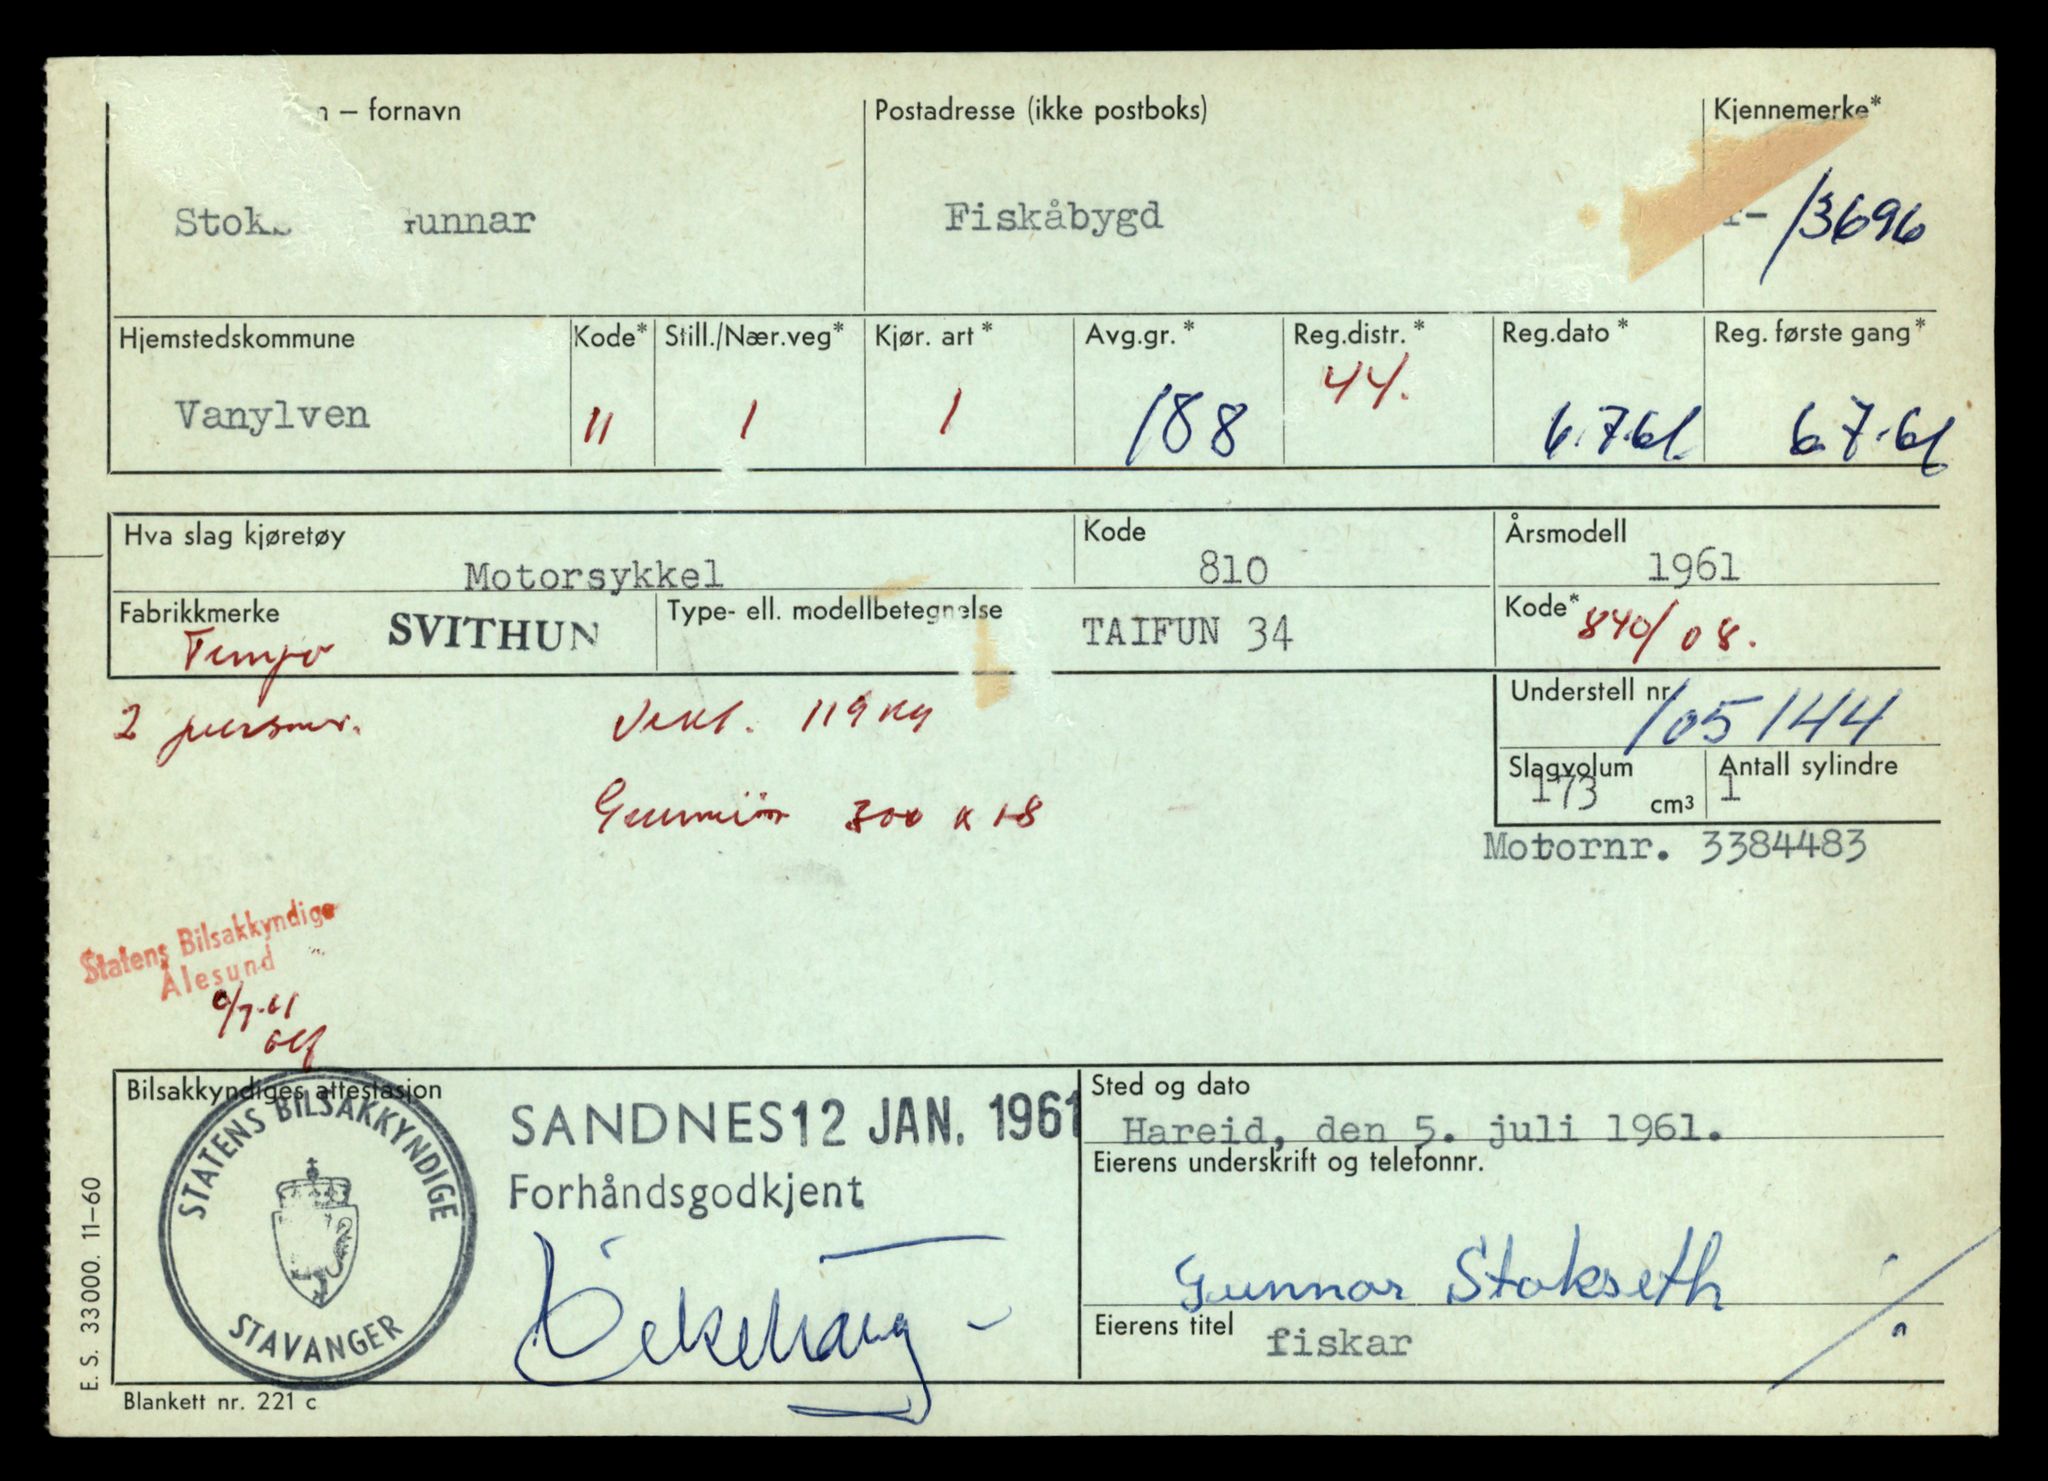 – fornavn
Postadresse (ikke postboks)
Kjennemerke*
Gunnar
Fiskåbygd
- 13696
Hjemstedskommune
Kode*
Still./Nær.veg*
Kjør. art*
Avg.gr.*
Reg.distr.*
Reg.dato*
Reg. første gang*
Vanylven
11
1
1
188
44.
6.7.61.
6.7.61
Hva slag kjøretøy
Kode
Årsmodell
Motorsykkel
810
1961
Fabrikkmerke
Tempo
SVITHUN
Type- ell. modellbetegnelse
TAIFUN 34
Kode*
840/08.
2 personer.
Vekt. 119 kg
Understell nr.
105144
Slagvolum
173 cm³
Antall sylindre
1
Gummiør 300 x 18
Motornr. 3384483
Statens Bilsakkyndige
Ålesund
6/7-61
Bilsakkyndiges attestasjon
STATENS BILSAKKYNDIGE
STAVANGER
SANDNES 12 JAN. 1961
Forhåndsgodkjent
Sted og dato
Hareid, den 5. juli 1961.
Eierens underskrift og telefonnr.
Gunnar Stokseth
Eierens titel
fiskar
E. S. 33000. 11–60
Blankett nr. 221 c